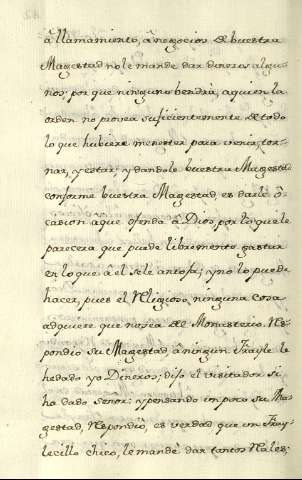 â llamamiento, â negocios de buestra
Magestad no le mande dar dineros algu-
nos; por que ninguno bendrà, aquien la
orden no provea suficientemente de todo
lo que hubiere menester para venir, tor-
nar, y estar; y dandole buestra Magestad
conforme buestra Magestad, es darle ô-
casion âque ofenda â Dios, por lo que le
parecera que puede libremente gastar
en lo que â el se le antoja; y no lo puede
hacer, pues el Religioso, ninguna cosa
adquiere que no sea del Monasterio. Res-
pondio su Magestad, â ningun frayle le
he dado yo Dineros; dijo el visitador si
ha dado señor; y pensando un poco su Ma-
gestad, Respondiò, es verdad que un fray-
lecillo chico, le mandè dar tantos Reales;